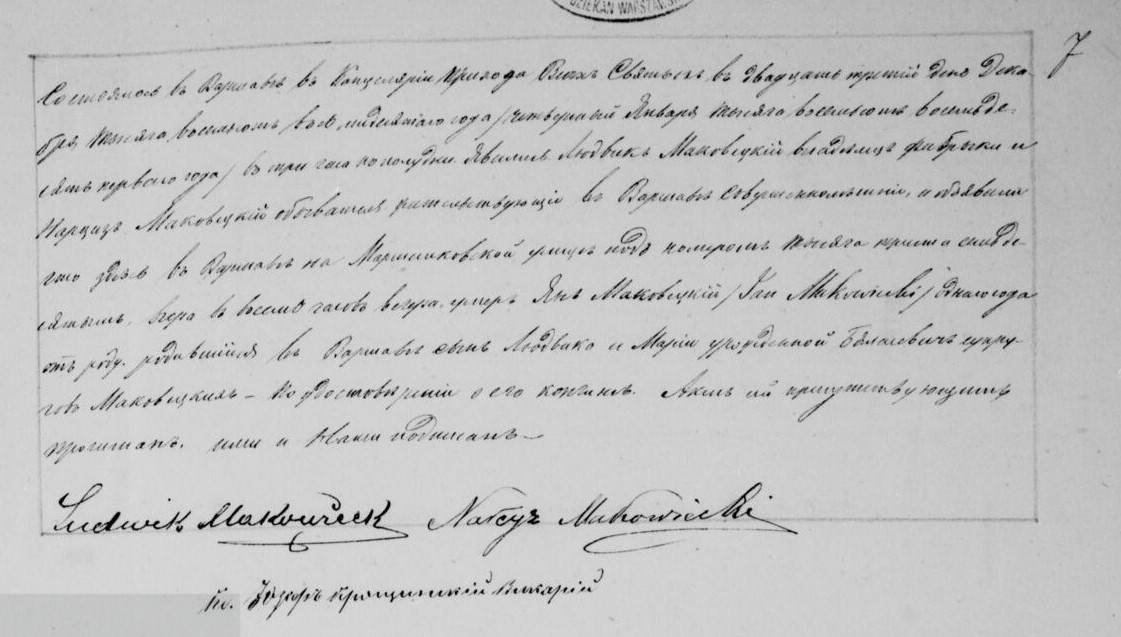 DZIEKAN WARSZAWSKI
7
Состоялось въ Варшавѣ въ Канцеляріи Прихода Всѣхъ Святыхъ въ двадцать третій день Дека-
бря тысяча восемьсотъ восьмидесятаго года / четвертый Января тысяча восемьсотъ восемьде-
сятъ перваго года / въ три часа по полудни. Явились Людвикъ Маковецкій владѣлецъ фабрики и
Нарцизъ Маковецкій обыватель жительствующіе въ Варшавѣ совершеннолѣтніе, и объявили
что здѣсь въ Варшавѣ на Маршалковской улицѣ подъ номеромъ тысяча триста семьде-
сятымъ, вчера въ восемь часовъ вечера, умеръ Янъ Маковецкій / Jan Makowiecki / одного года
отъ роду, родившійся въ Варшавѣ сынъ Людвика и Маріи урожденной супру-
говъ Маковецкихъ – По удостовѣреніи о его кончинѣ. Актъ сей присутствующимъ
прочитанъ, ими и Нами подписанъ –
Ludwik Makowieck Narcyz Makowiecki
Кс. Іозефъ Викарій